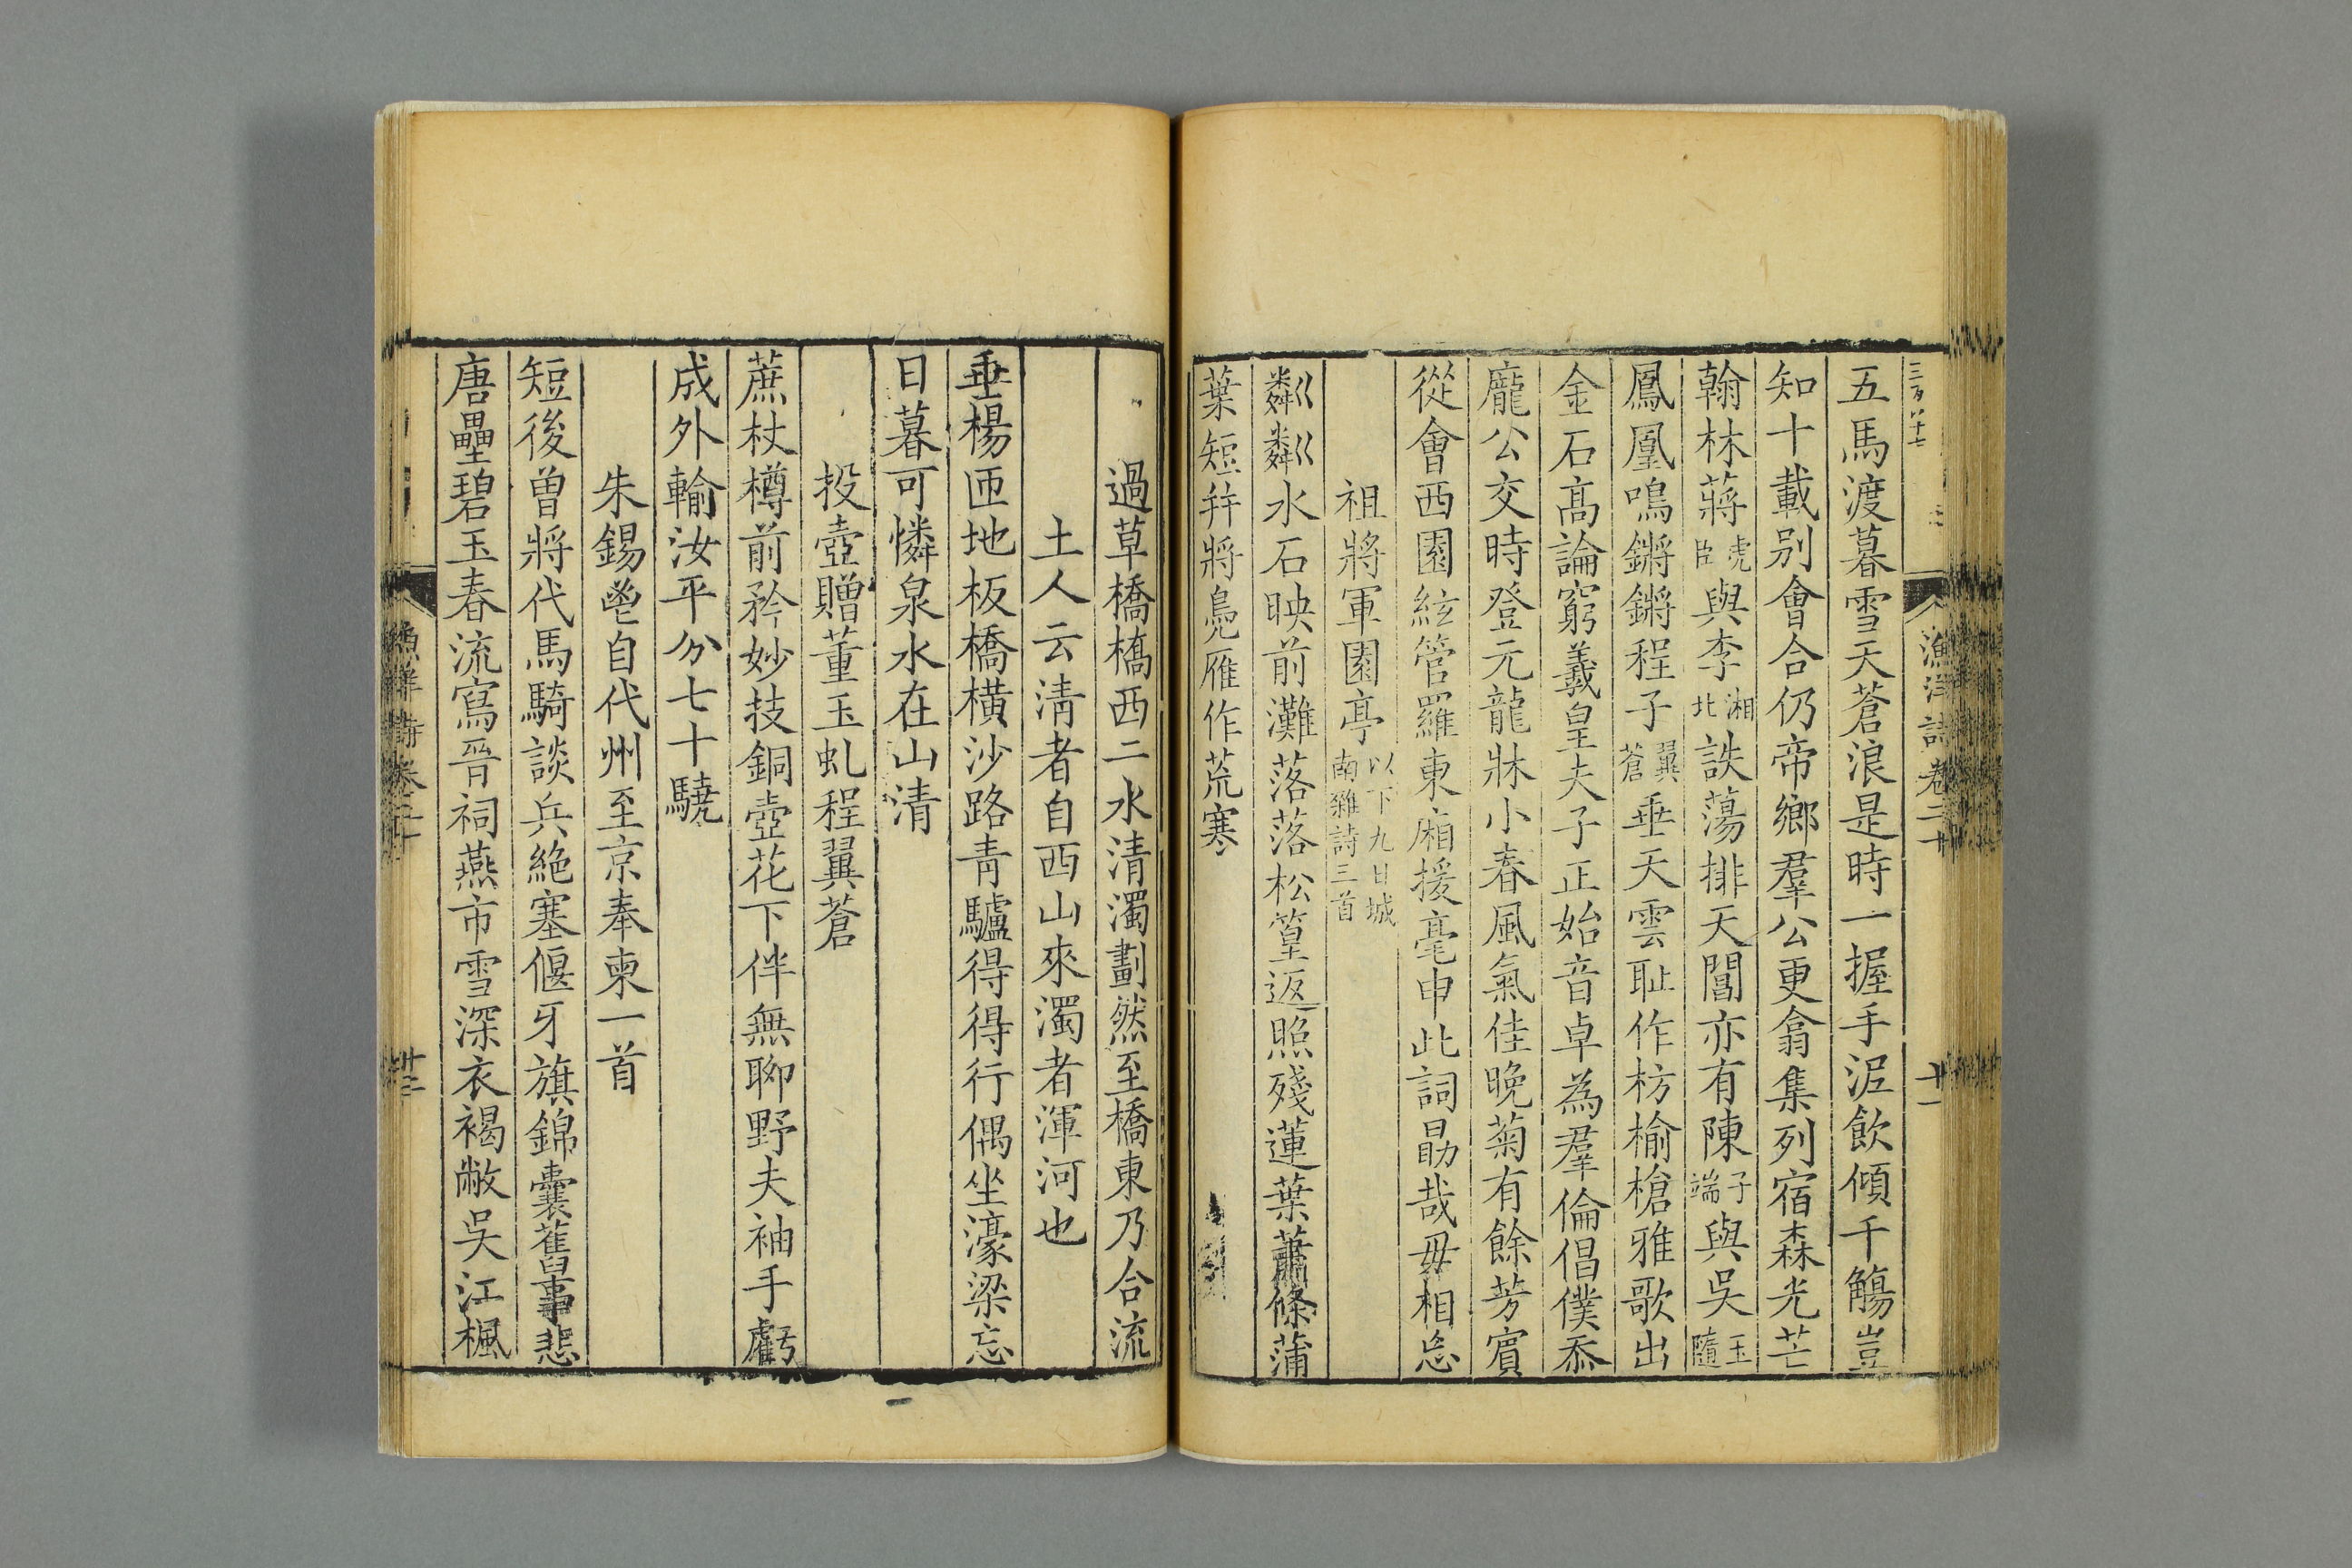 五馬渡暮雪天蒼浪是時一握手泥飲傾千觴豈
知十載别會合仍帝鄉羣公更翕集列宿森光芒
翰林蔣虎臣與李湘北詄蕩排天閶亦有陳子端與吳玉隨
鳳凰鳴鏘鏘程子翼蒼垂天雲耻作枋榆槍雅歌出
金石高論窮羲皇夫子正始音卓為羣倫倡僕忝
龐公交時登元龍牀小春風氣佳晚菊有餘芳賓
從會西園絃管羅東廂援毫申此詞勗哉毋相忘
祖將軍園亭以下九日城南雜詩三首
粼粼水石映前灘落落松篁返照殘蓮葉蕭條蒲
葉短并將鳧雁作荒寒
漁洋詩卷二十
十一
過草橋橋西二水清濁劃然至橋東乃合流
土人云清者自西山來濁者渾河也
垂楊匝地板橋橫沙路青驢得得行偶坐濠梁忘
日暮可憐泉水在山清
投壺贈董玉虬程翼蒼
蔗杖樽前矜妙技銅壺花下伴無聊野夫袖手虧
成外輸汝平分七十驍
朱錫鬯自代州至京奉柬一首
短後曾將代馬騎談兵絶塞偃牙旗錦囊舊事悲
唐壘碧玉春流寫晉祠燕市雪深衣褐敝吳江楓
漁洋詩卷二十
十二